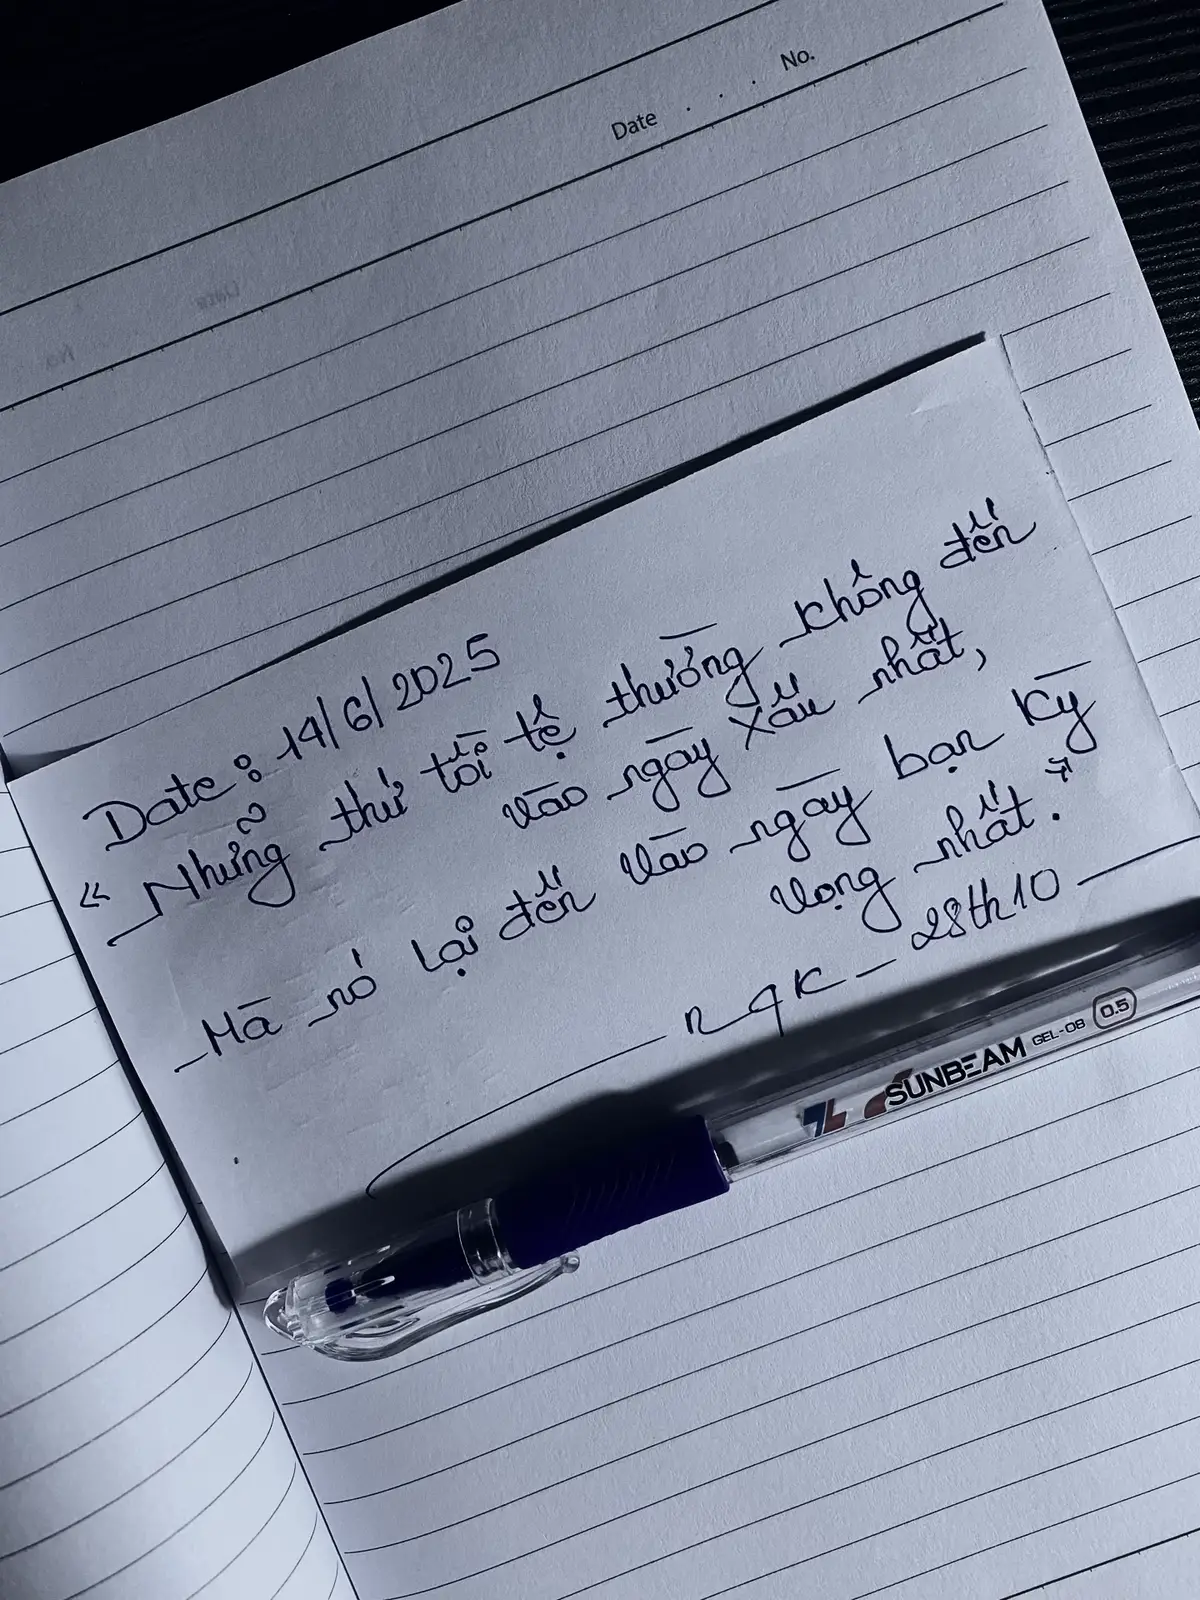 No.
Date . . .
Date : 14/6/2025
“ Những thứ tồi tệ thường không đến
vào ngày xấu nhất,
Mà nó lại đến vào ngày bạn kỳ
vọng nhất. ”
n q k - 28th10
SUNBEAM GEL-08 0.5